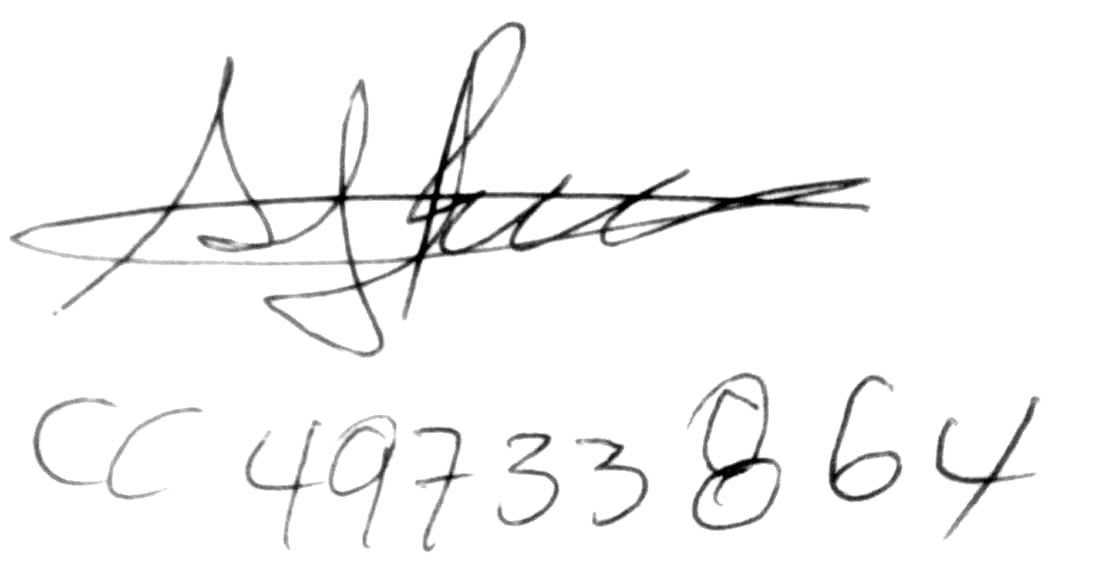 CC 49733864